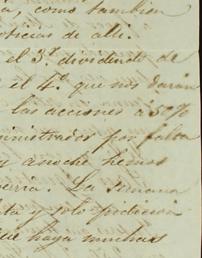 como tambien
noticias de alli.
el 3.er dividendo de
el 4.º que nos darán
las acciones a 50%
ministrador por falta
y anoche hemos
La semana
y solo pidieron
que haya muchas